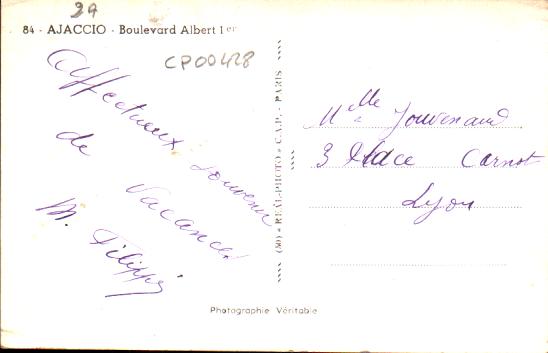 2A
84 - AJACCIO - Boulevard Albert 1er
CP00428
Affectueux souvenir
de vacances
M. Filippi
(50) « REAL-PHOTO » C.A.P. - PARIS
Mlle Jouvenaud
3 Place Carnot
Lyon
Photographie Véritable